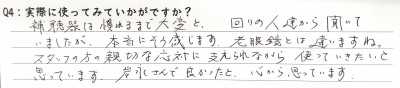 Q4:実際に使ってみていかがですか?
補聴器は慣れるまで大変と、回りの人達から聞いて
いましたが、本当にそう感じます。老眼鏡とは違いますね。
スタッフの方の親切な応対に支えられながら使っていきたいと
思っています。岩永さんで良かったと、心から思っています。